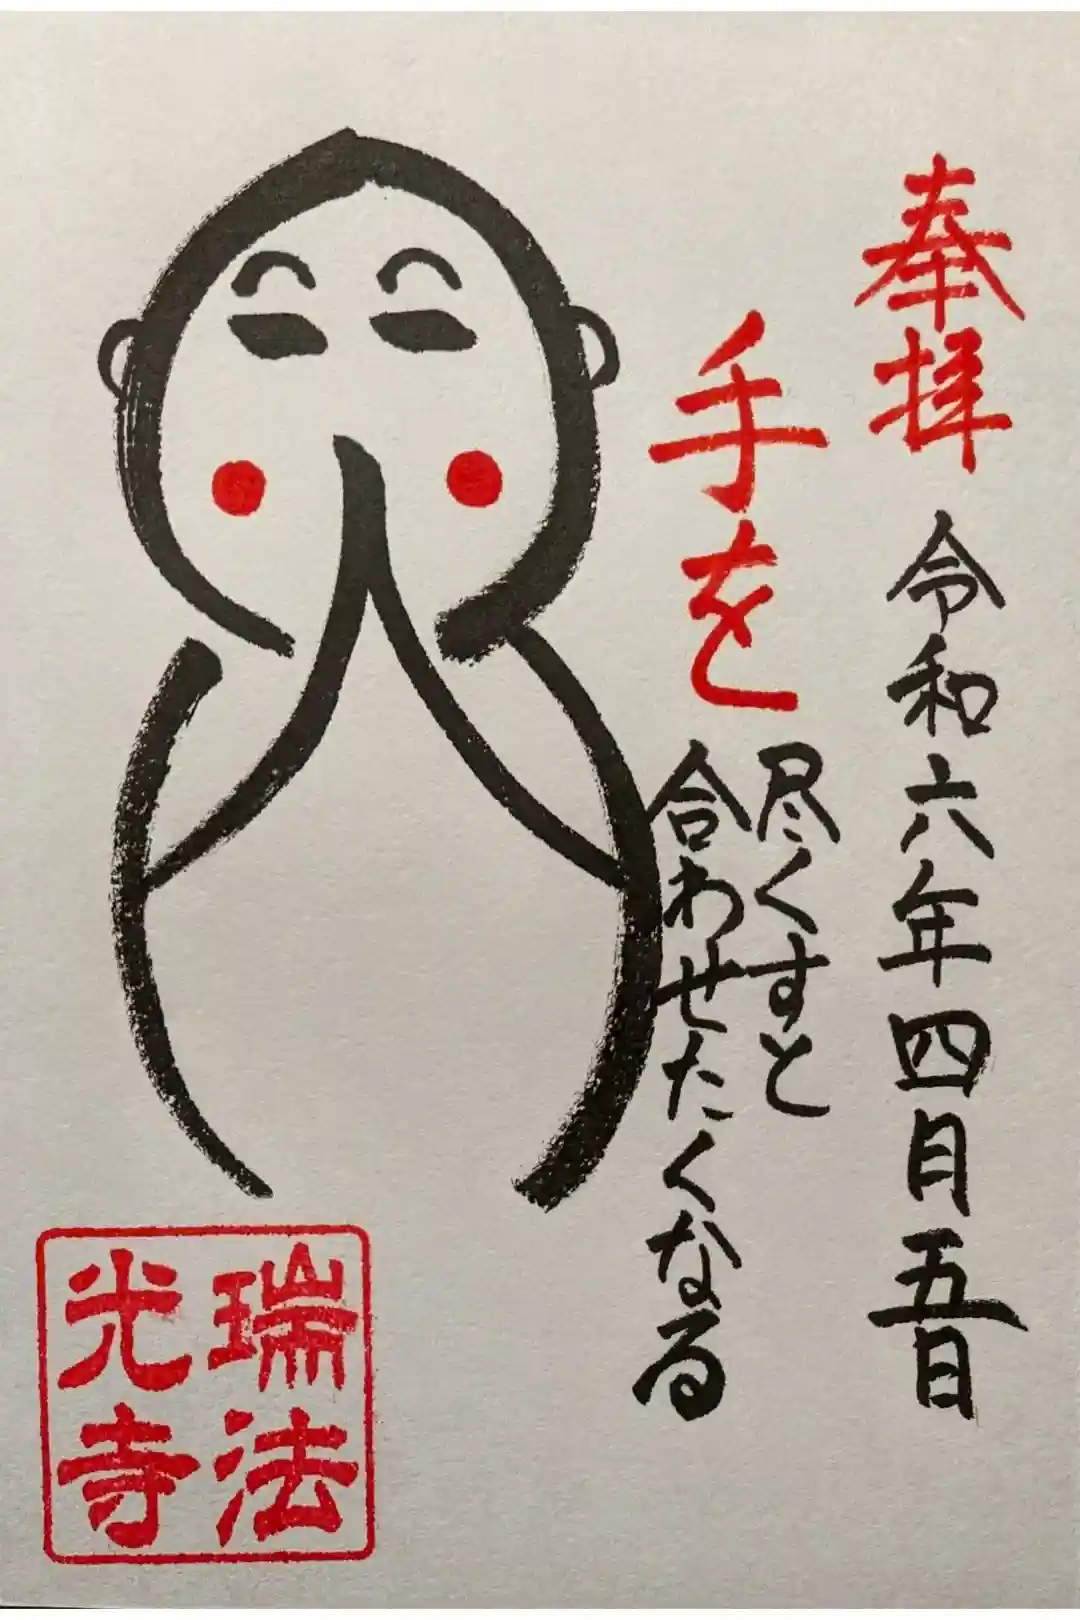 奉拝 令和六年四月五日
手を
尽くすと
合わせたくなる
瑞法
光寺